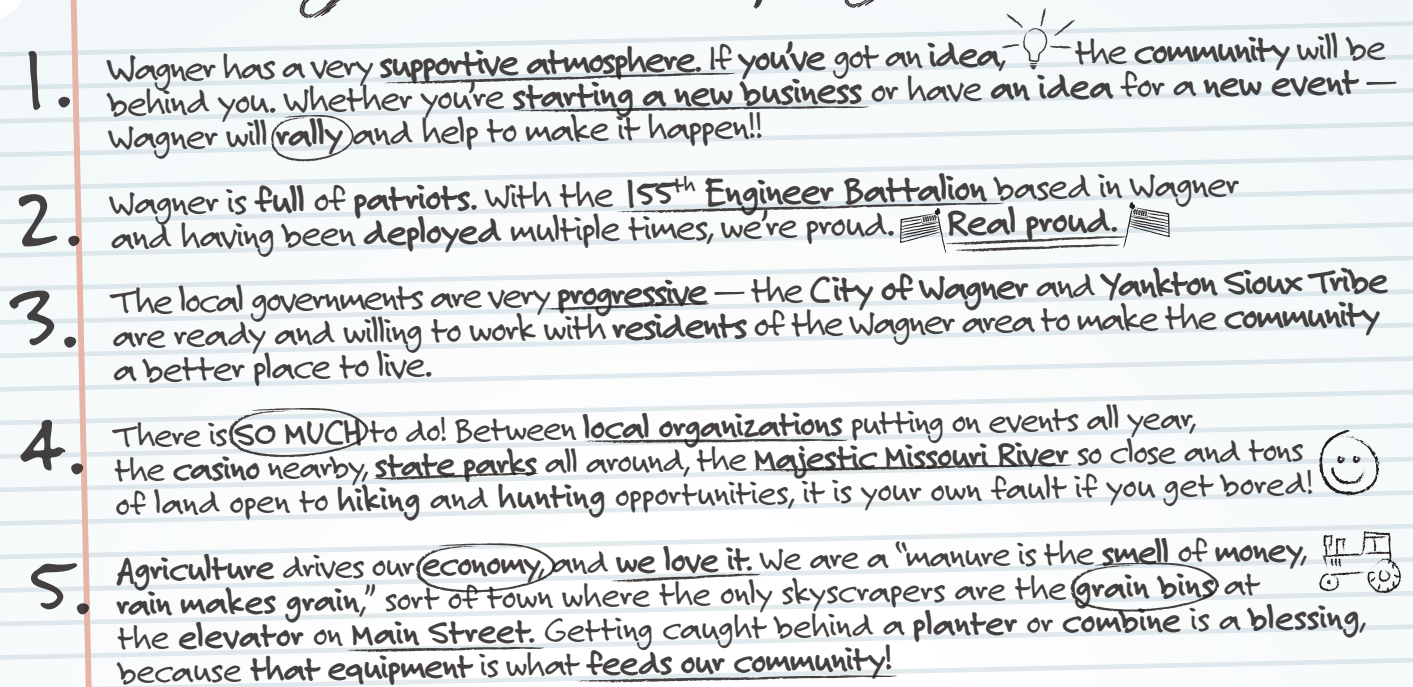 1. Wagner has a very supportive atmosphere. If you've got an idea, the community will be
behind you. Whether you're starting a new business or have an idea for a new event —
Wagner will rally and help to make it happen!!
2. Wagner is full of patriots. With the 155th Engineer Battalion based in Wagner
and having been deployed multiple times, we're proud. Real proud.
3. The local governments are very progressive — the City of Wagner and Yankton Sioux Tribe
are ready and willing to work with residents of the Wagner area to make the community
a better place to live.
4. There is SO MUCH to do! Between local organizations putting on events all year,
the casino nearby, state parks all around, the Majestic Missouri River so close and tons
of land open to hiking and hunting opportunities, it is your own fault if you get bored!
5. Agriculture drives our economy, and we love it. We are a "manure is the smell of money,
rain makes grain," sort of town where the only skyscrapers are the grain bins at
the elevator on Main Street. Getting caught behind a planter or combine is a blessing,
because that equipment is what feeds our community!